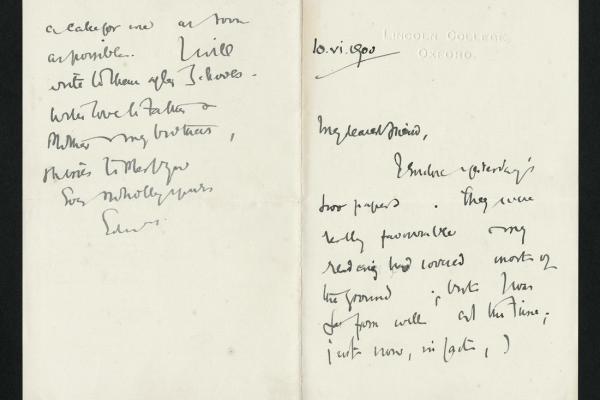 LINCOLN COLLEGE,
OXFORD.
10.vi.1900
My dearest friend,
I enclose yesterday's
two papers. They were
really favourable & my
reading had covered most of
the ground; but I was
far from well at the time;
just now, in fact, I
a cake for me as soon
as possible. I will
write to them after Schools.
With love to Father &
Mother & my brothers,
to Merfyn
Ever & wholly yours
Edwy